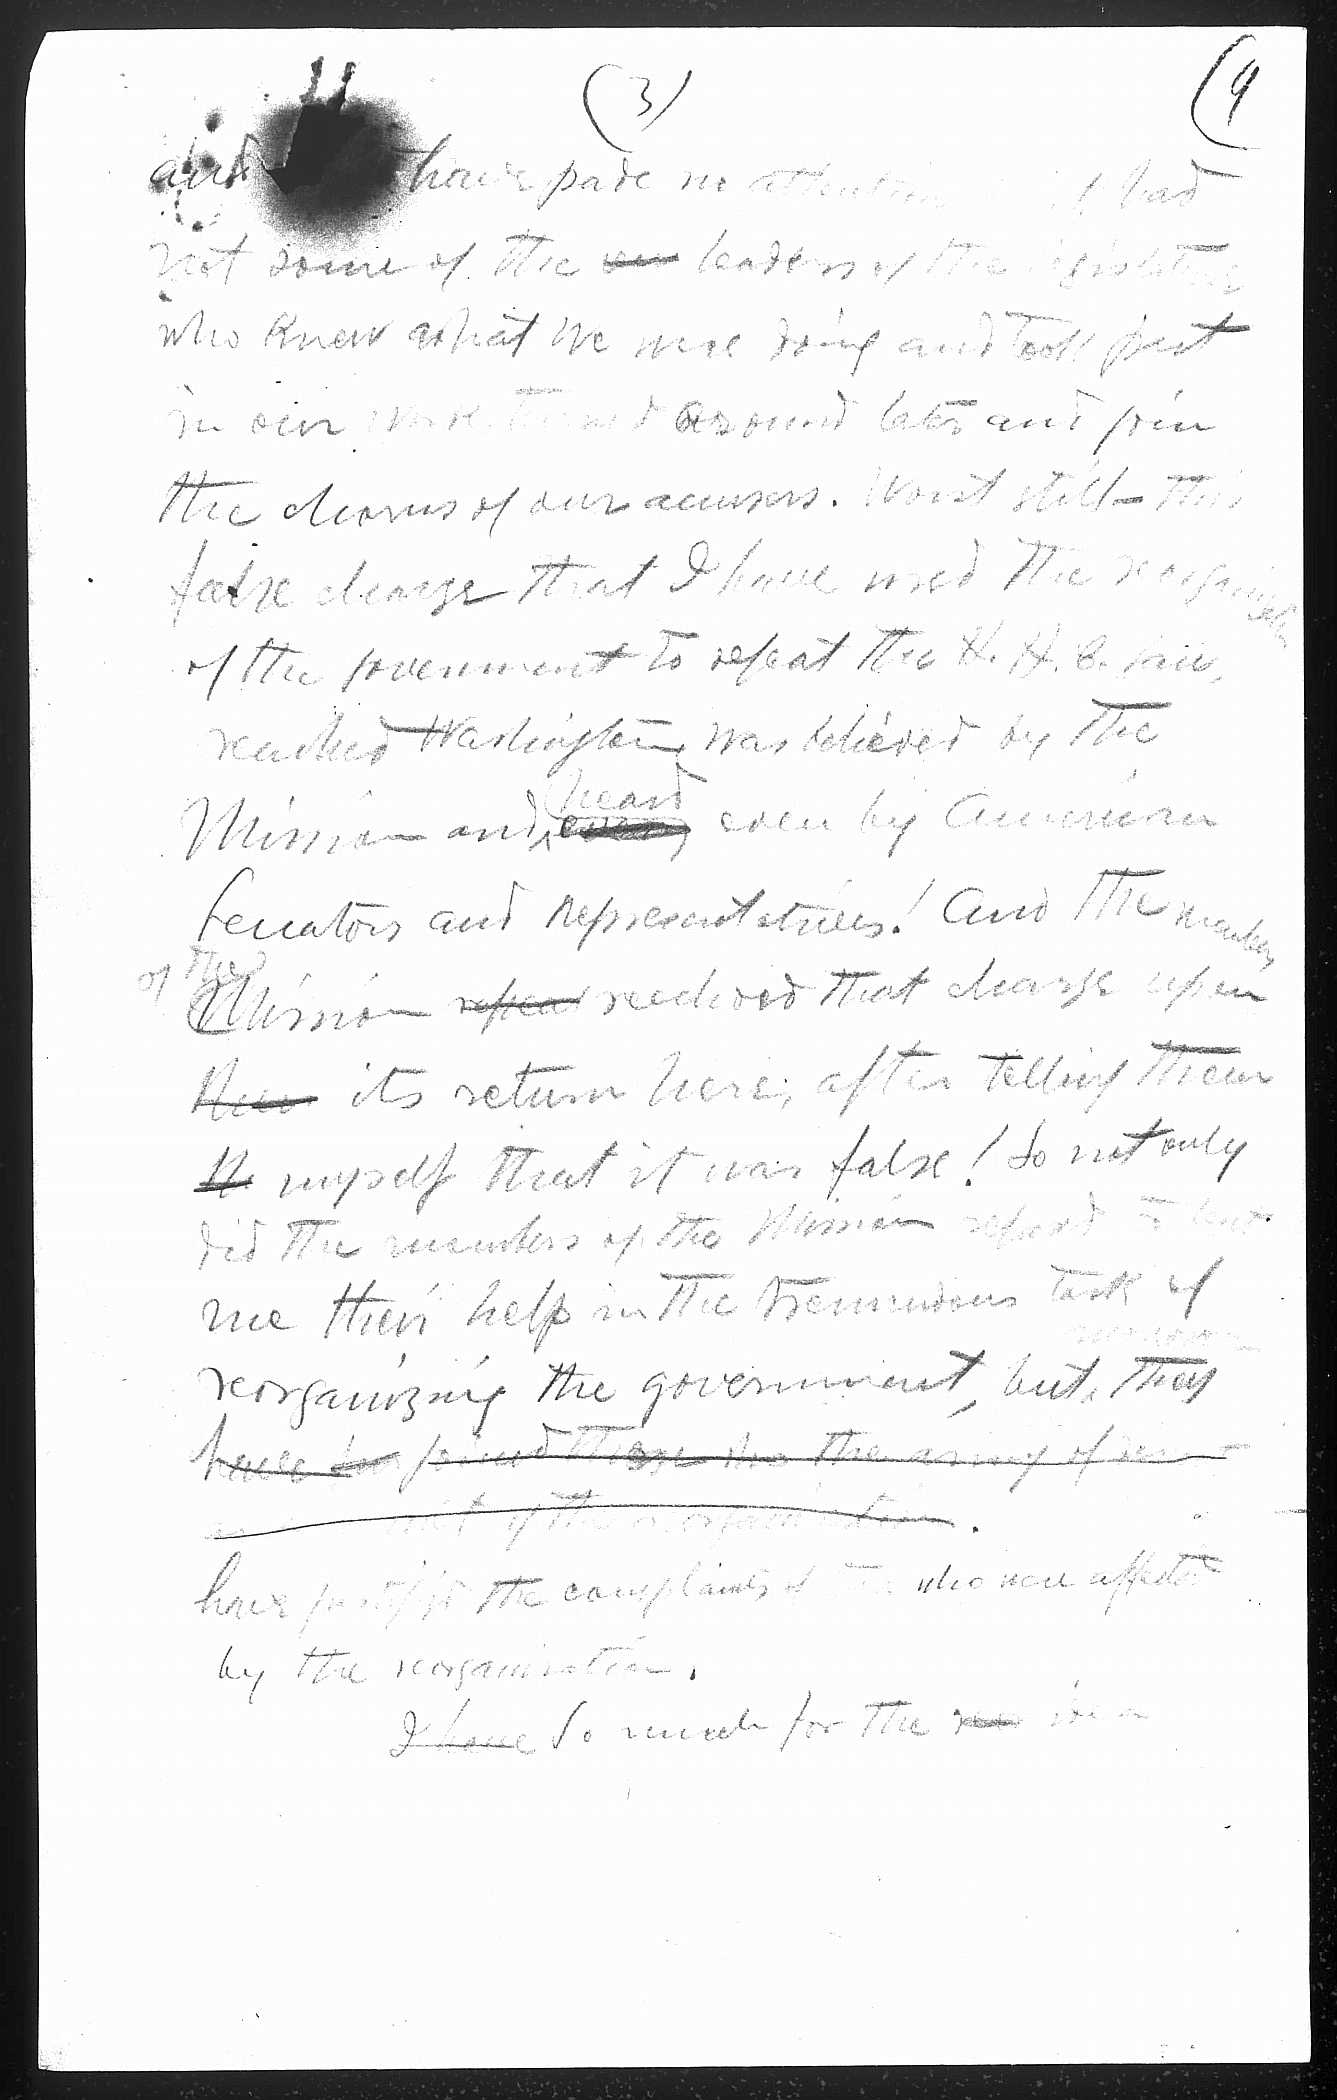 (3) (9
and have paid no attention had
not some of the leaders of the legislature
who knew what we were doing and took part
in our work turned around later and join
the chorus of our accusers. Worst still – this
false charge that I have used the reorganization
of the government to defeat the H. H. C. bill,
reached Washington, was believed by the
Mission and heard even by American
Senators and Representatives! And the members
of the Mission received that charge upon
its return here, after telling them
myself that it was false! So not only
did the members of the Mission to lend
me their help in the tremendous task of
reorganizing the government, but they
have joined the army of
of the reorganization.
have the complaints of who were affected
by the reorganization.
I have So much for the